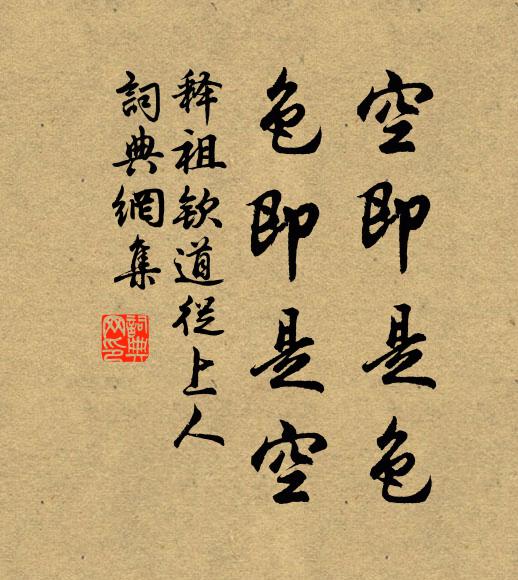 空即是色
色即是空
释祖欽道從上人
詞典網集
詞典
网印